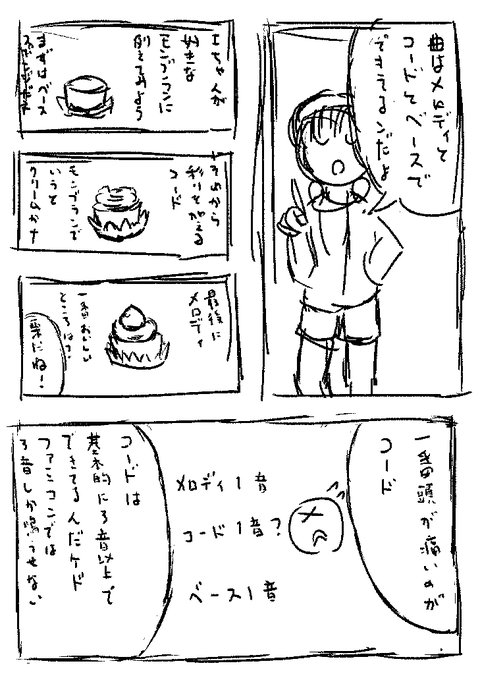 曲はメロディと
コードとベースで
できてるンだよ
Iちゃんが
好きな
モンブランに
例えてみよう
まずはベース
それから
彩りを加える
コード
モンブランで
いうと
クリームかナ
最後に
メロディ
一番おいしい
ところは?
栗だね!
一番頭が痛いのが
コード
メロディ1音
コード1音?
ベース1音
コードは
基本的に3音以上で
できてるんだケド
ファミコンでは
3音しか鳴らせない